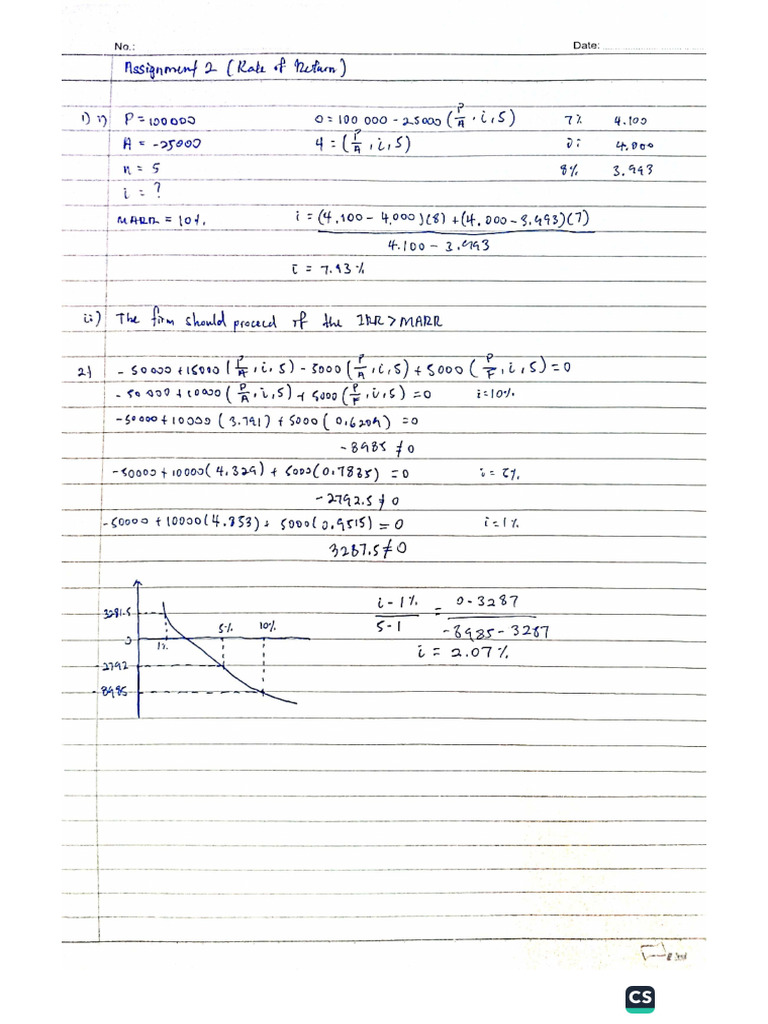 No.: Date:
Assignment 2 (Rate of Return)
1) i) P = 100000 0 = 100 000 - 25000 (P/A, i, 5) 7% 4.100
A = -25000 4 = (P/A, i, 5) i 4.000
n = 5 8% 3.993
i = ?
MARR = 10%. i = (4.100 - 4.000)(8) + (4.000 - 3.993)(7)
4.100 - 3.993
i = 7.93%
ii) The firm should proceed if the IRR > MARR
2) - 50000 + 15000 (P/A, i, 5) - 5000 (P/A, i, 5) + 5000 (P/F, i, 5) = 0
- 50 000 + 10000 (P/A, i, 5) + 5000 (P/F, i, 5) = 0 i = 10%
-50000 + 10000 (3.791) + 5000 (0.6209) = 0
-8985 ≠ 0
-50000 + 10000 (4.329) + 5000 (0.7835) = 0 i = 5%
-2792.5 ≠ 0
-50000 + 10000 (4.853) + 5000 (0.9515) = 0 i = 1%
3287.5 ≠ 0
i - 1% = 0 - 3287
5 - 1 -8985 - 3287
i = 2.07%
3281.5
5% 10%
0
1%
-2792
-8985
CS